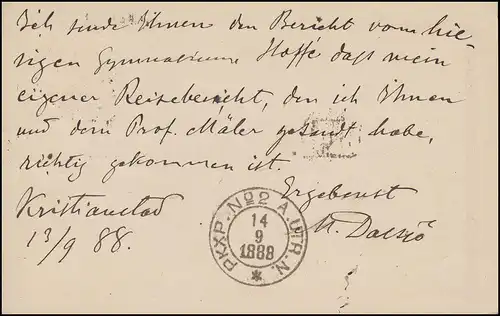 Ich sende Ihnen den Bericht vom hie-
sigen Gymnasium. Hoffe daß mein
eigener Reisebericht, den ich Ihnen
und dem Prof. Mäler gesandt habe,
richtig gekommen ist.
Ergebenst
Kristianstad
13/9 88.
PKXP. No 2 A. UTR. N.
14
9
1888